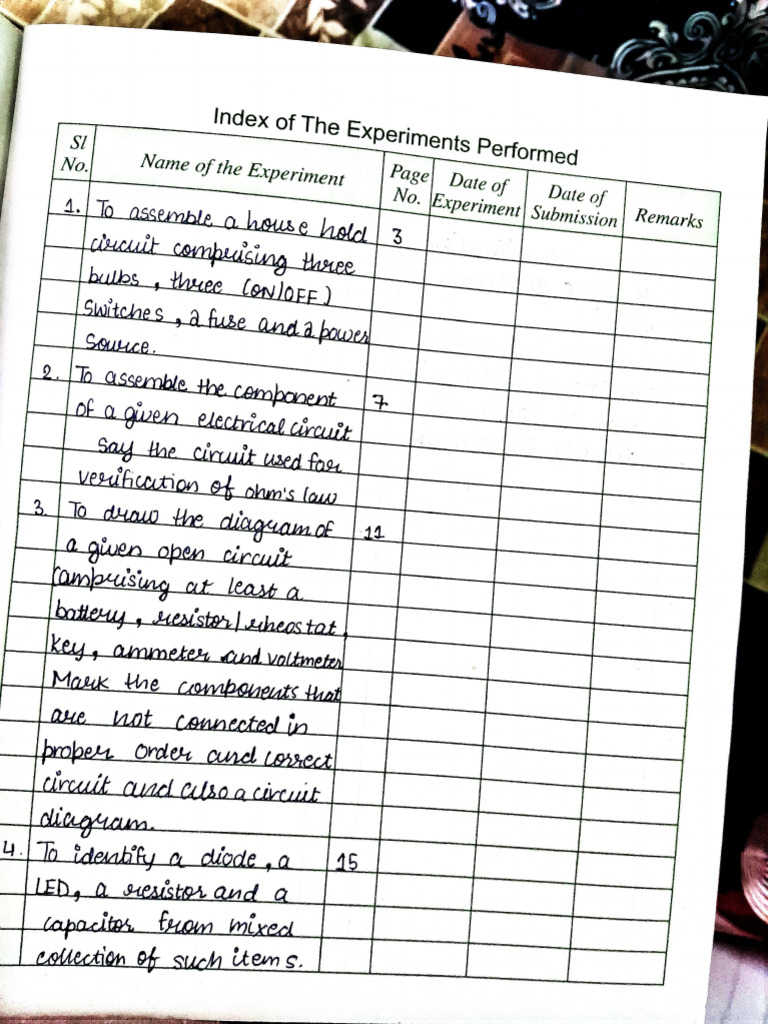 Index of The Experiments Performed
Sl No. Name of the Experiment Page No. Date of Experiment Date of Submission Remarks
1. To assemble a house hold 3
circuit comprising three
bulbs, three (ON/OFF)
switches, a fuse and a power
source.
2. To assemble the component 7
of a given electrical circuit
say the circuit used for
verification of ohm's law
3. To draw the diagram of 11
a given open circuit
comprising at least a
battery, resistor/rheostat,
key, ammeter and voltmeter
Mark the components that
are not connected in
proper order and correct
circuit and also a circuit
diagram.
4. To identify a diode, a 15
LED, a resistor and a
capacitor from mixed
collection of such items.